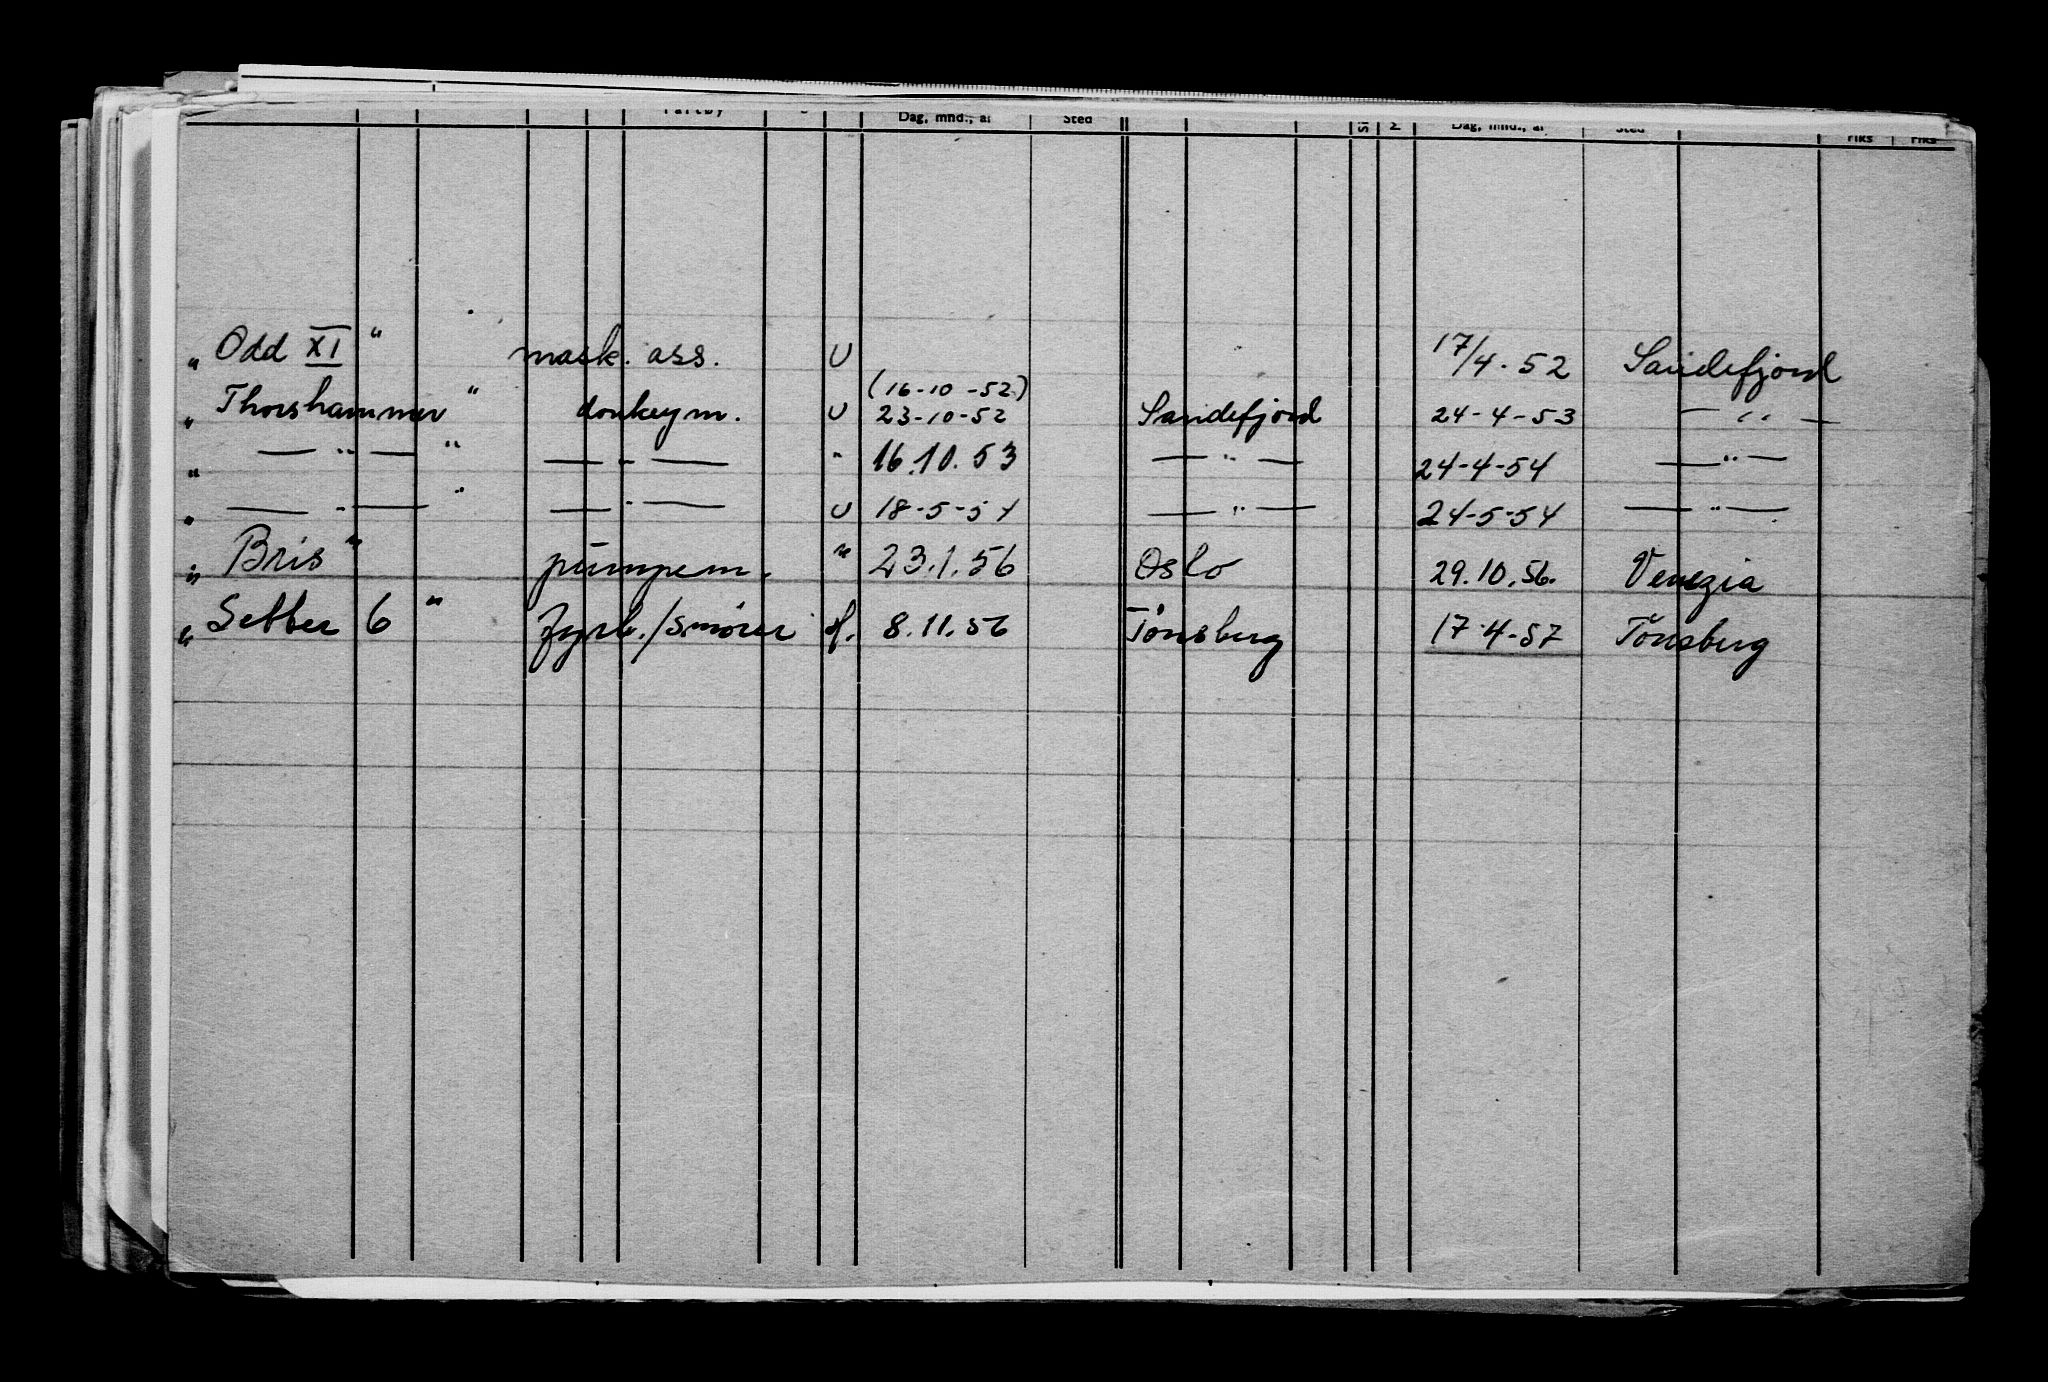 Dag, mnd., år Sted Dag, mnd., år Sted Fiks Fiks
„ Odd XI " mask. ass. U 17/4-52 Sandefjord
(16-10-52)
„ Thorshammer " donkeym. U 23-10-52 Sandefjord 24-4-53 — " —
„ — " — " — " — " 16.10.53 — " — 24-4-54 — " —
„ — " — " — " — U 18-5-54 — " — 24-5-54 — " —
„ Bris " pumpem. " 23.1.56 Oslo 29.10.56. Venezia
„ Setter 6 " fyrb./smører H. 8.11.56 Tønsberg 17-4-57 Tønsberg